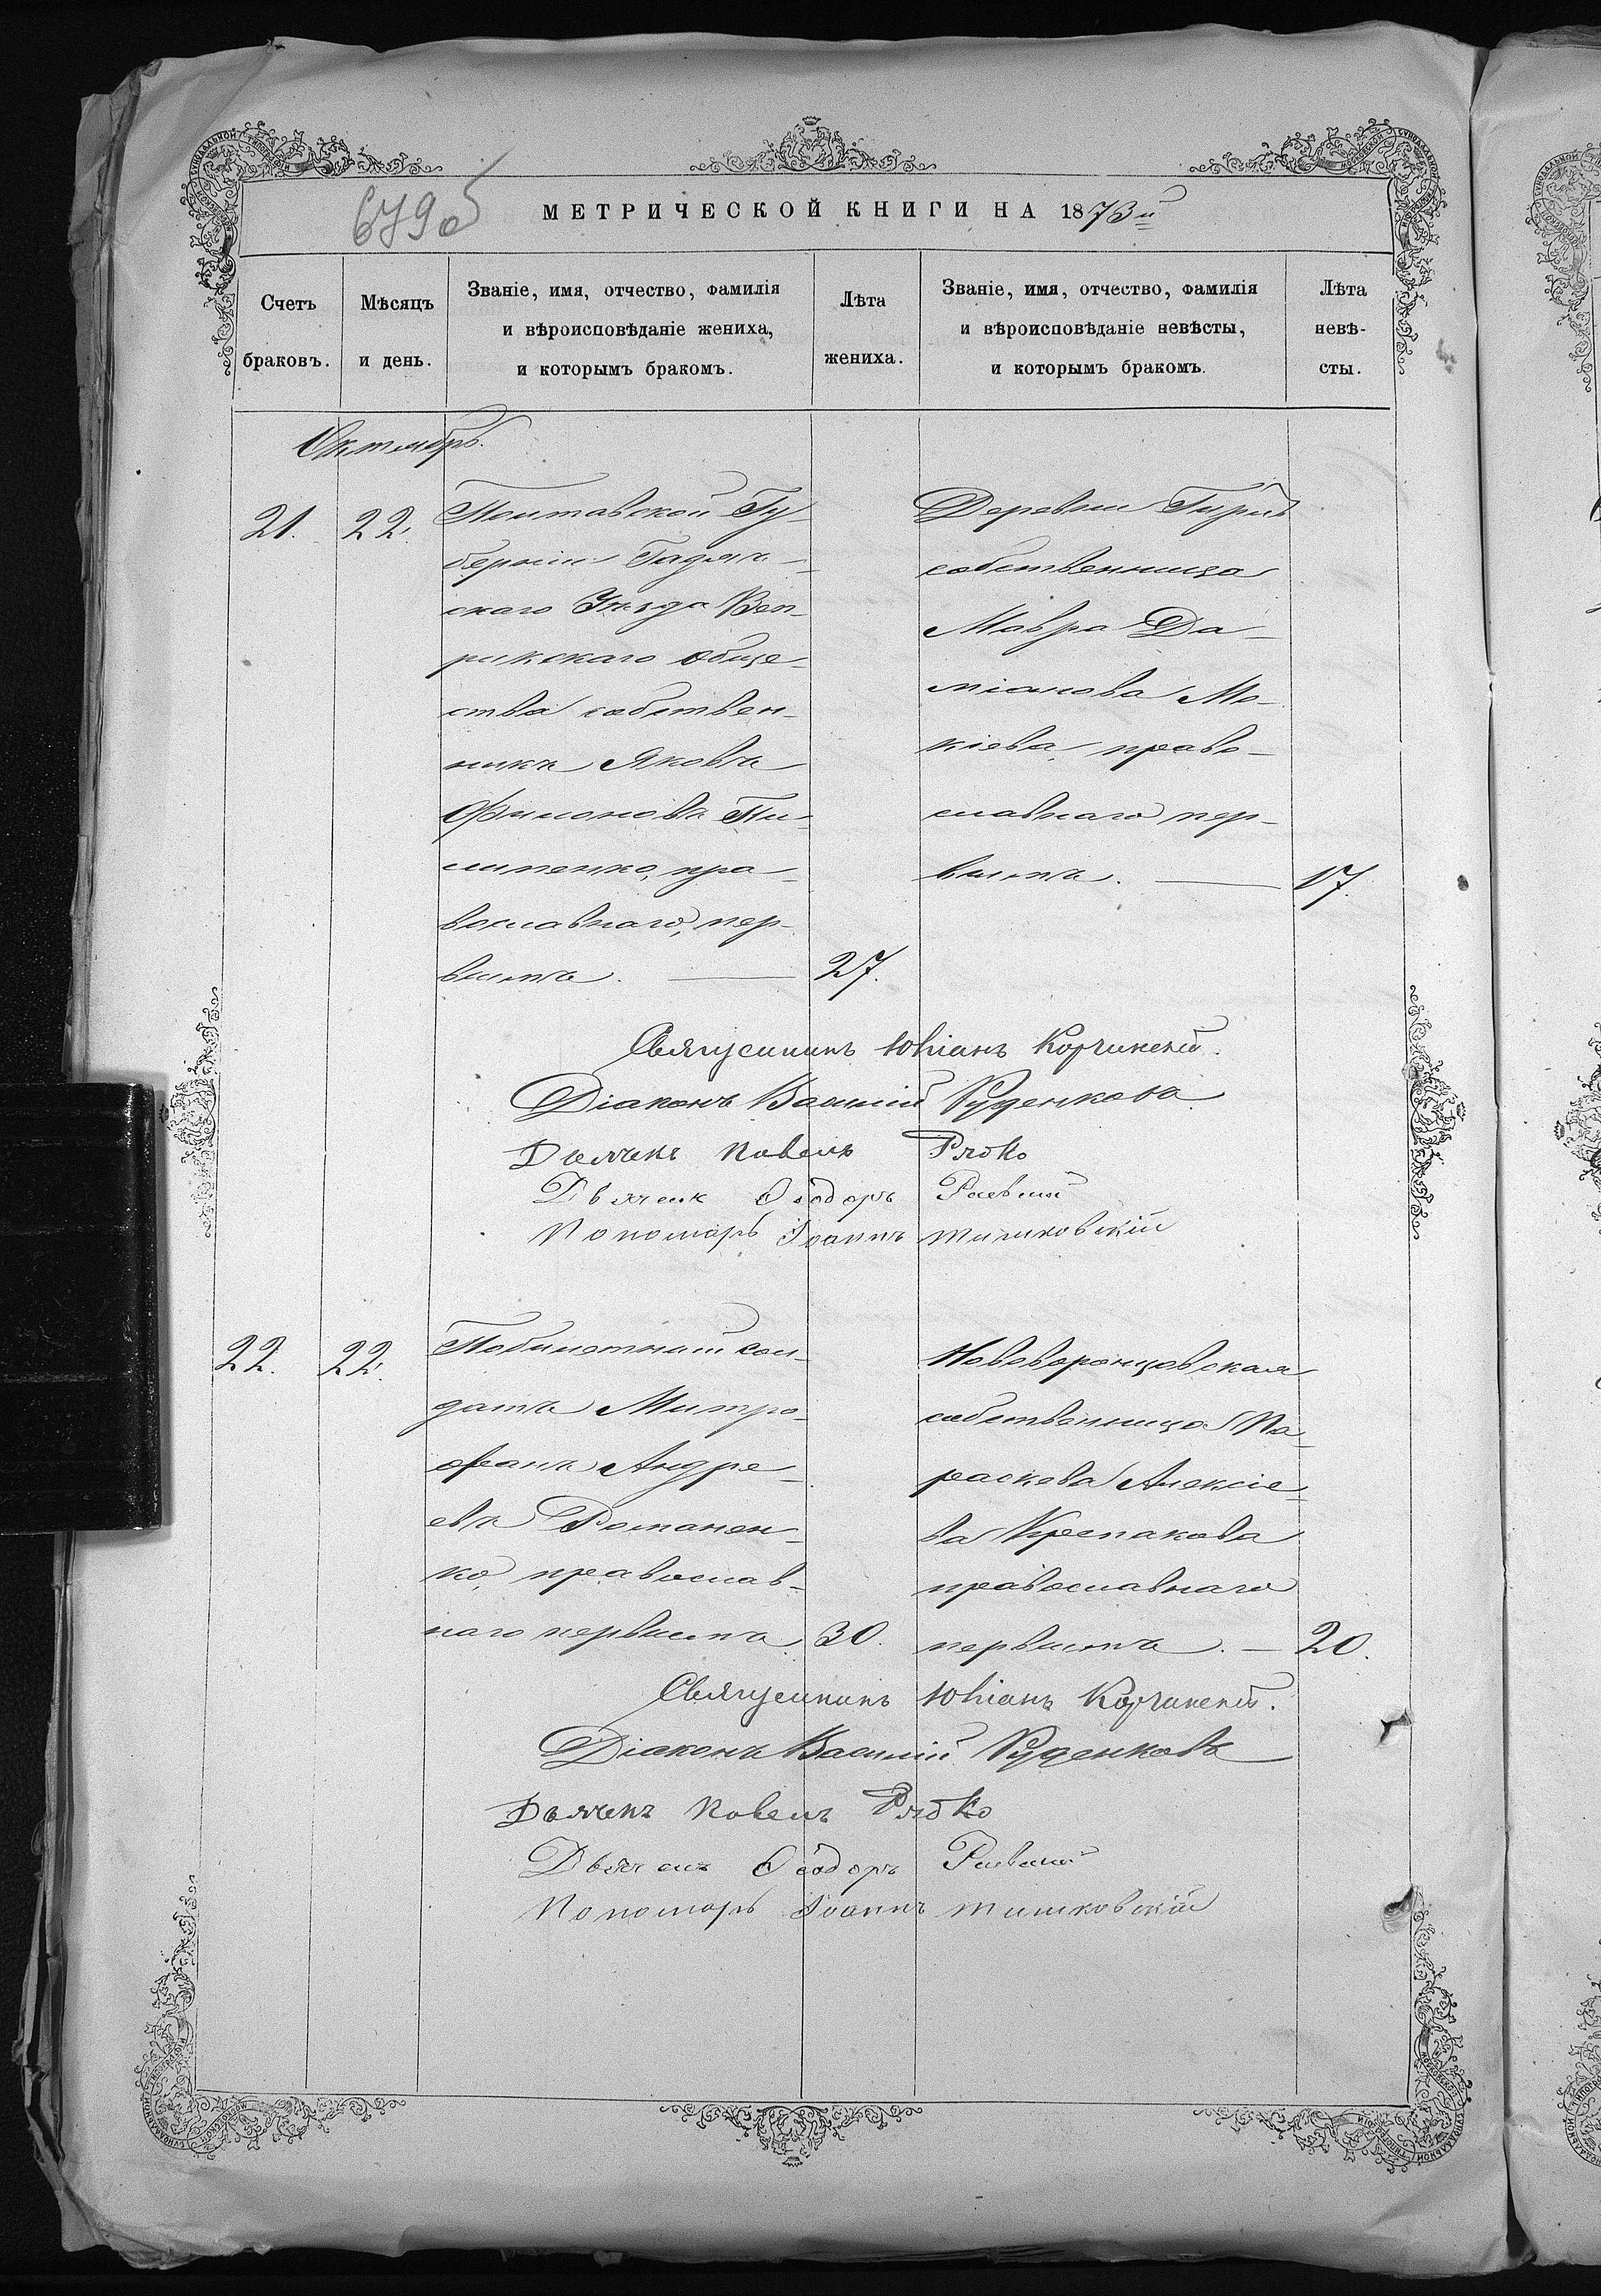 679об
МЕТРИЧЕСКОЙ КНИГИ НА 1873й
Счетъ браковъ.
Мѣсяцъ и день.
Званіе, имя, отчество, фамилія
и вѣроисповѣданіе жениха,
и которымъ бракомъ.
Лѣта жениха.
Званіе, имя, отчество, фамилія
и вѣроисповѣданіе невѣсты,
и которымъ бракомъ.
Лѣта невѣ-
сты.
Октябрь.
21. 22.
Полтавской Гу-
берніи Гадяч-
скаго Уѣзда Веп-
рикскаго обще-
ства собствен-
никъ Яковъ
Филоновъ Пи-
липенко, пра-
вославнаго, пер-
вымъ. — 27.
Деревни
собственница
Мавра Да-
міанова Мо-
кіева, право-
славнаго пер-
вымъ. — 17.
Священникъ Юліанъ Корчинскій.
Діаконъ Василій Руденковъ
Дьячекъ Павелъ Рябко
Дьячекъ Ѳеодоръ Раевскій
Пономарь Іоаннъ Тишковскій
22. 22.
Побилетный сол-
датъ Митро-
фанъ Андре-
евъ Романен-
ко, православ-
наго первымъ 30.
Нововоронцовская
собственница Па-
раскева Алексіе-
ва Крепакова
православнаго
первымъ. — 20.
Священникъ Юліанъ Корчинскій.
Діаконъ Василій Руденковъ
Дьячекъ Павелъ Рябко
Дьячекъ Ѳеодоръ Раевскій
Пономарь Іоаннъ Тишковскій